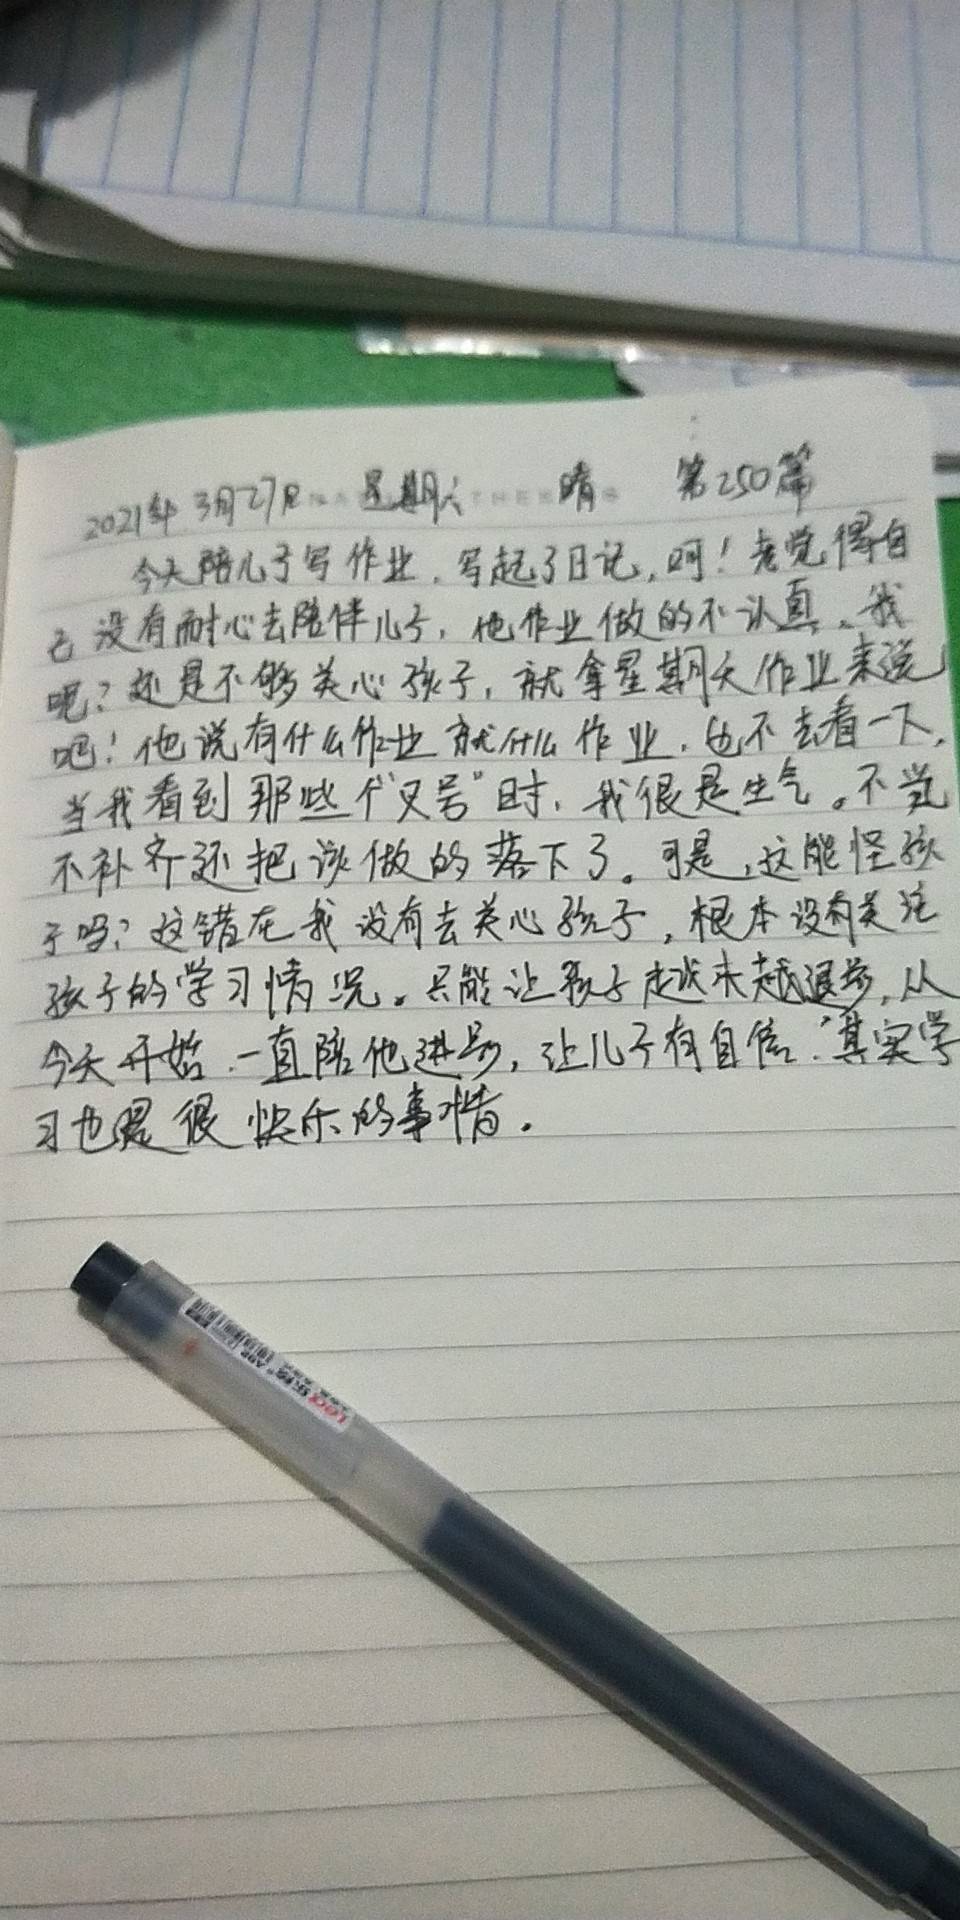 2021年3月27日 星期六 晴 第250篇
今天陪儿子写作业，写起了日记，呵！老觉得自
己没有耐心去陪伴儿子，他作业做的不认真。我
呢？还是不够关心孩子，就拿星期天作业来说
吧！他说有什么作业就什么作业，也不去看一下，
当我看到那些个“叉号”时，我很是生气。不光
不补齐还把该做的落下了。可是，这能怪孩
子吗？这错在我没有去关心孩子，根本没有关注
孩子的学习情况。只能让孩子越来越退步，从
今天开始，一直陪他进步，让儿子有自信，其实学
习也是很快乐的事情。